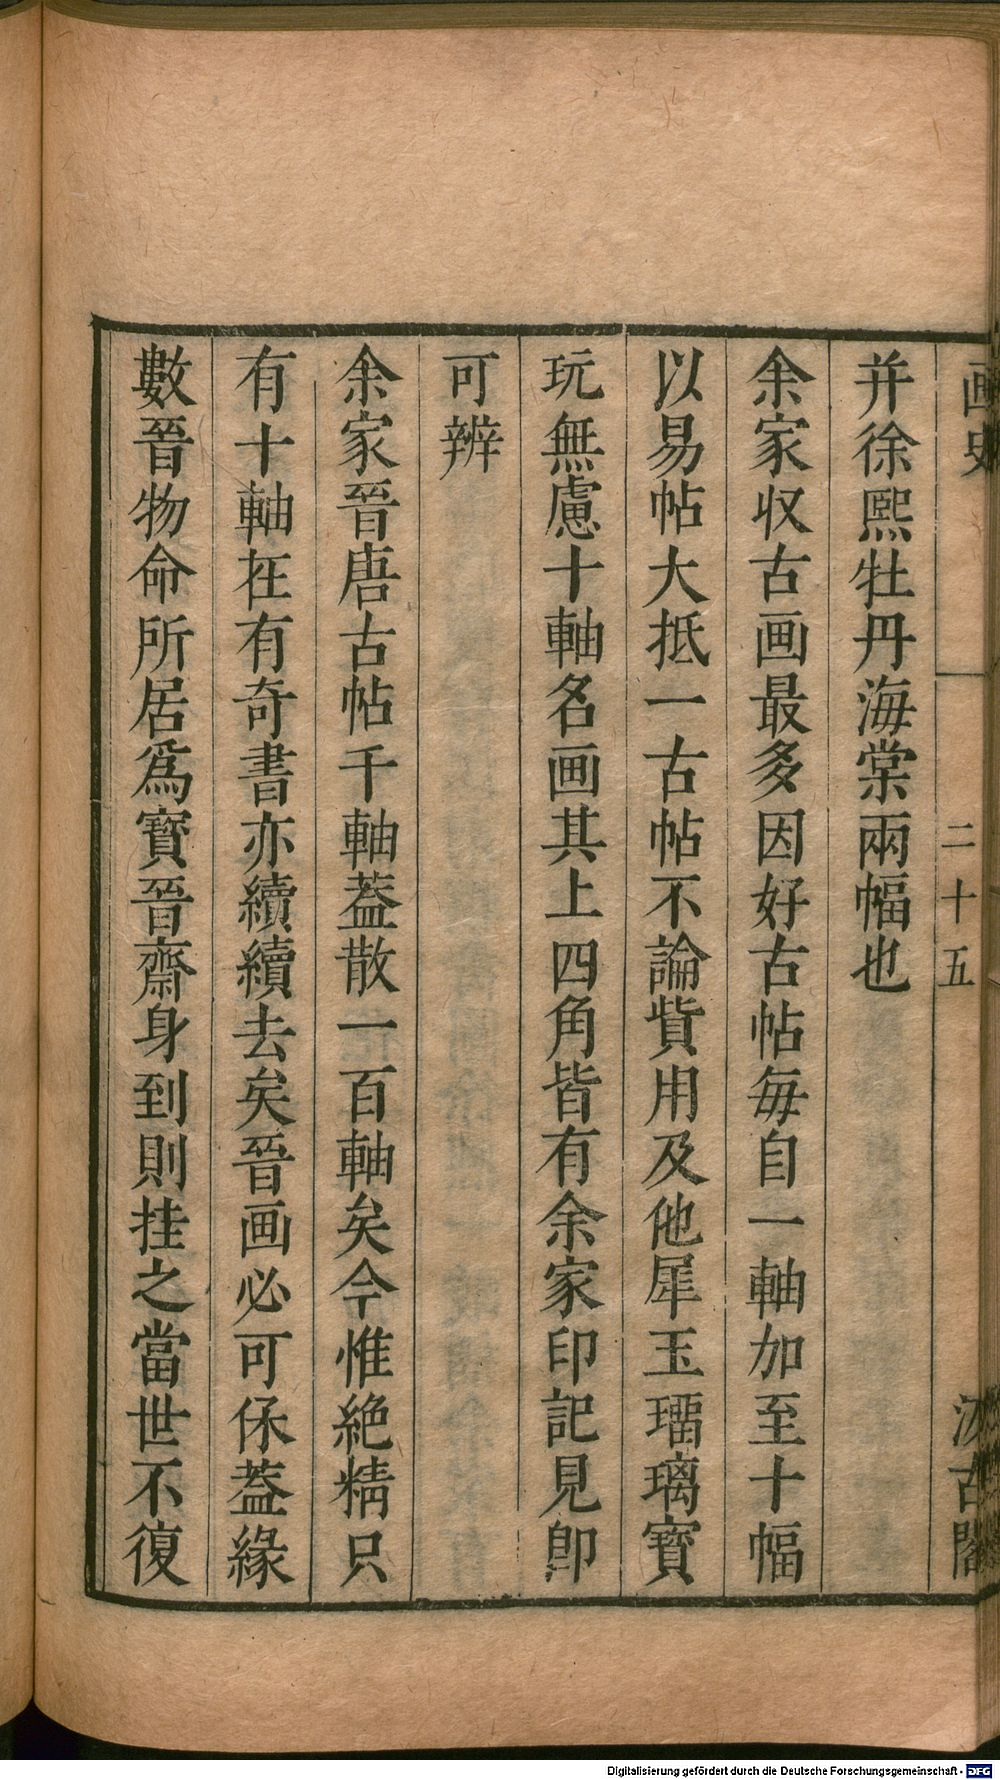 画史
二十五
汲古閣
并徐熙牡丹海棠兩幅也
余家收古画最多因好古帖每自一軸加至十幅
以易帖大抵一古帖不論貲用及他犀玉瑠璃寳
玩無慮十軸名画其上四角皆有余家印記見卽
可辨
余家晉唐古帖千軸葢散一百軸矣今惟絶精只
有十軸在有奇書亦續續去矣晉画必可保葢緣
數晉物命所居爲寳晉齋身到則挂之當世不復
Digitalisierung gefördert durch die Deutsche Forschungsgemeinschaft - DFG